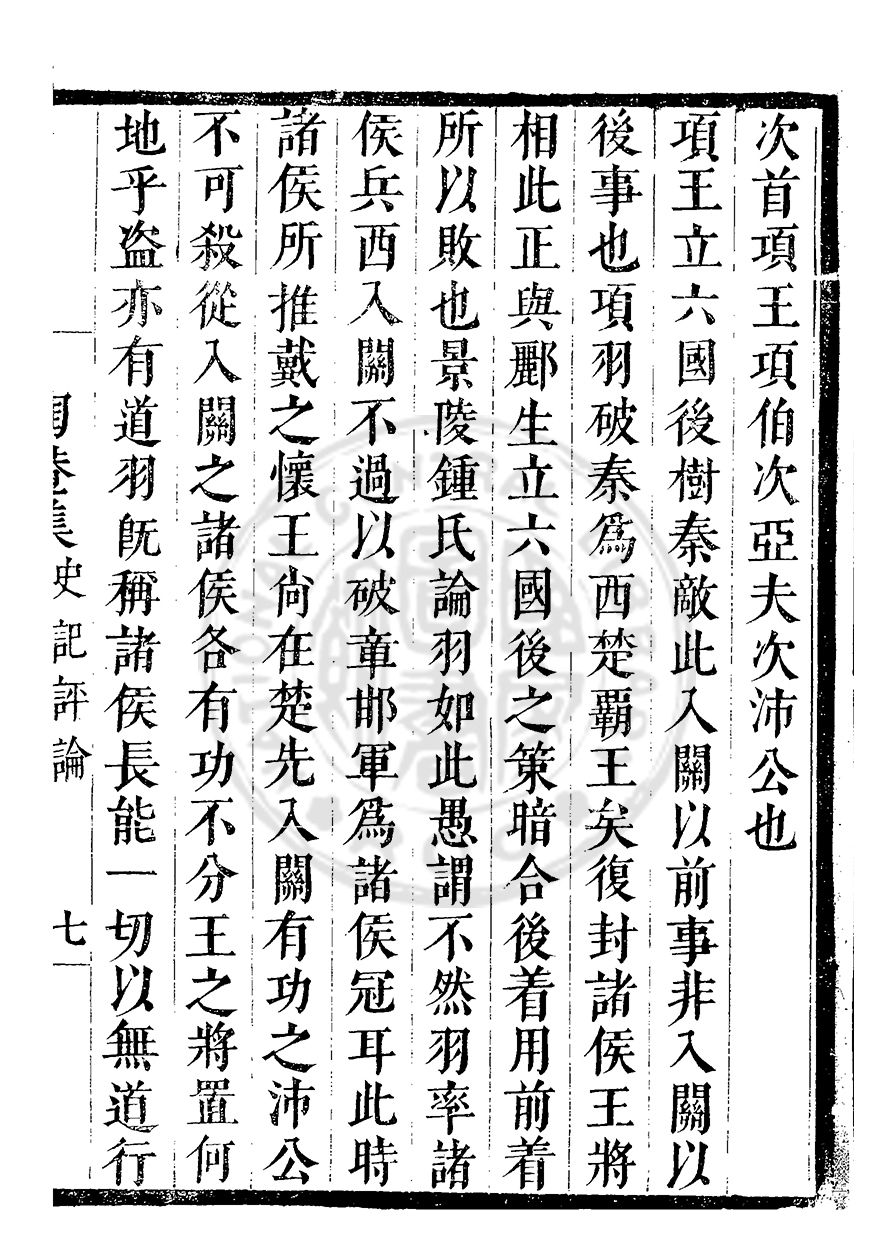 次首項王項伯次亞夫次沛公也
項王立六國後樹秦敵此入關以前事非入關以
後事也項羽破秦爲西楚霸王矣復封諸侯王將
相此正與酈生立六國後之策暗合後着用前着
所以敗也景陵鍾氏論羽如此愚謂不然羽率諸
侯兵西入關不過以破章邯軍爲諸侯冠耳此時
諸侯所推戴之懷王尙在楚先入關有功之沛公
不可殺從入關之諸侯各有功不分王之將置何
地乎盜亦有道羽旣稱諸侯長能一切以無道行
陶菴集 史記評論 七